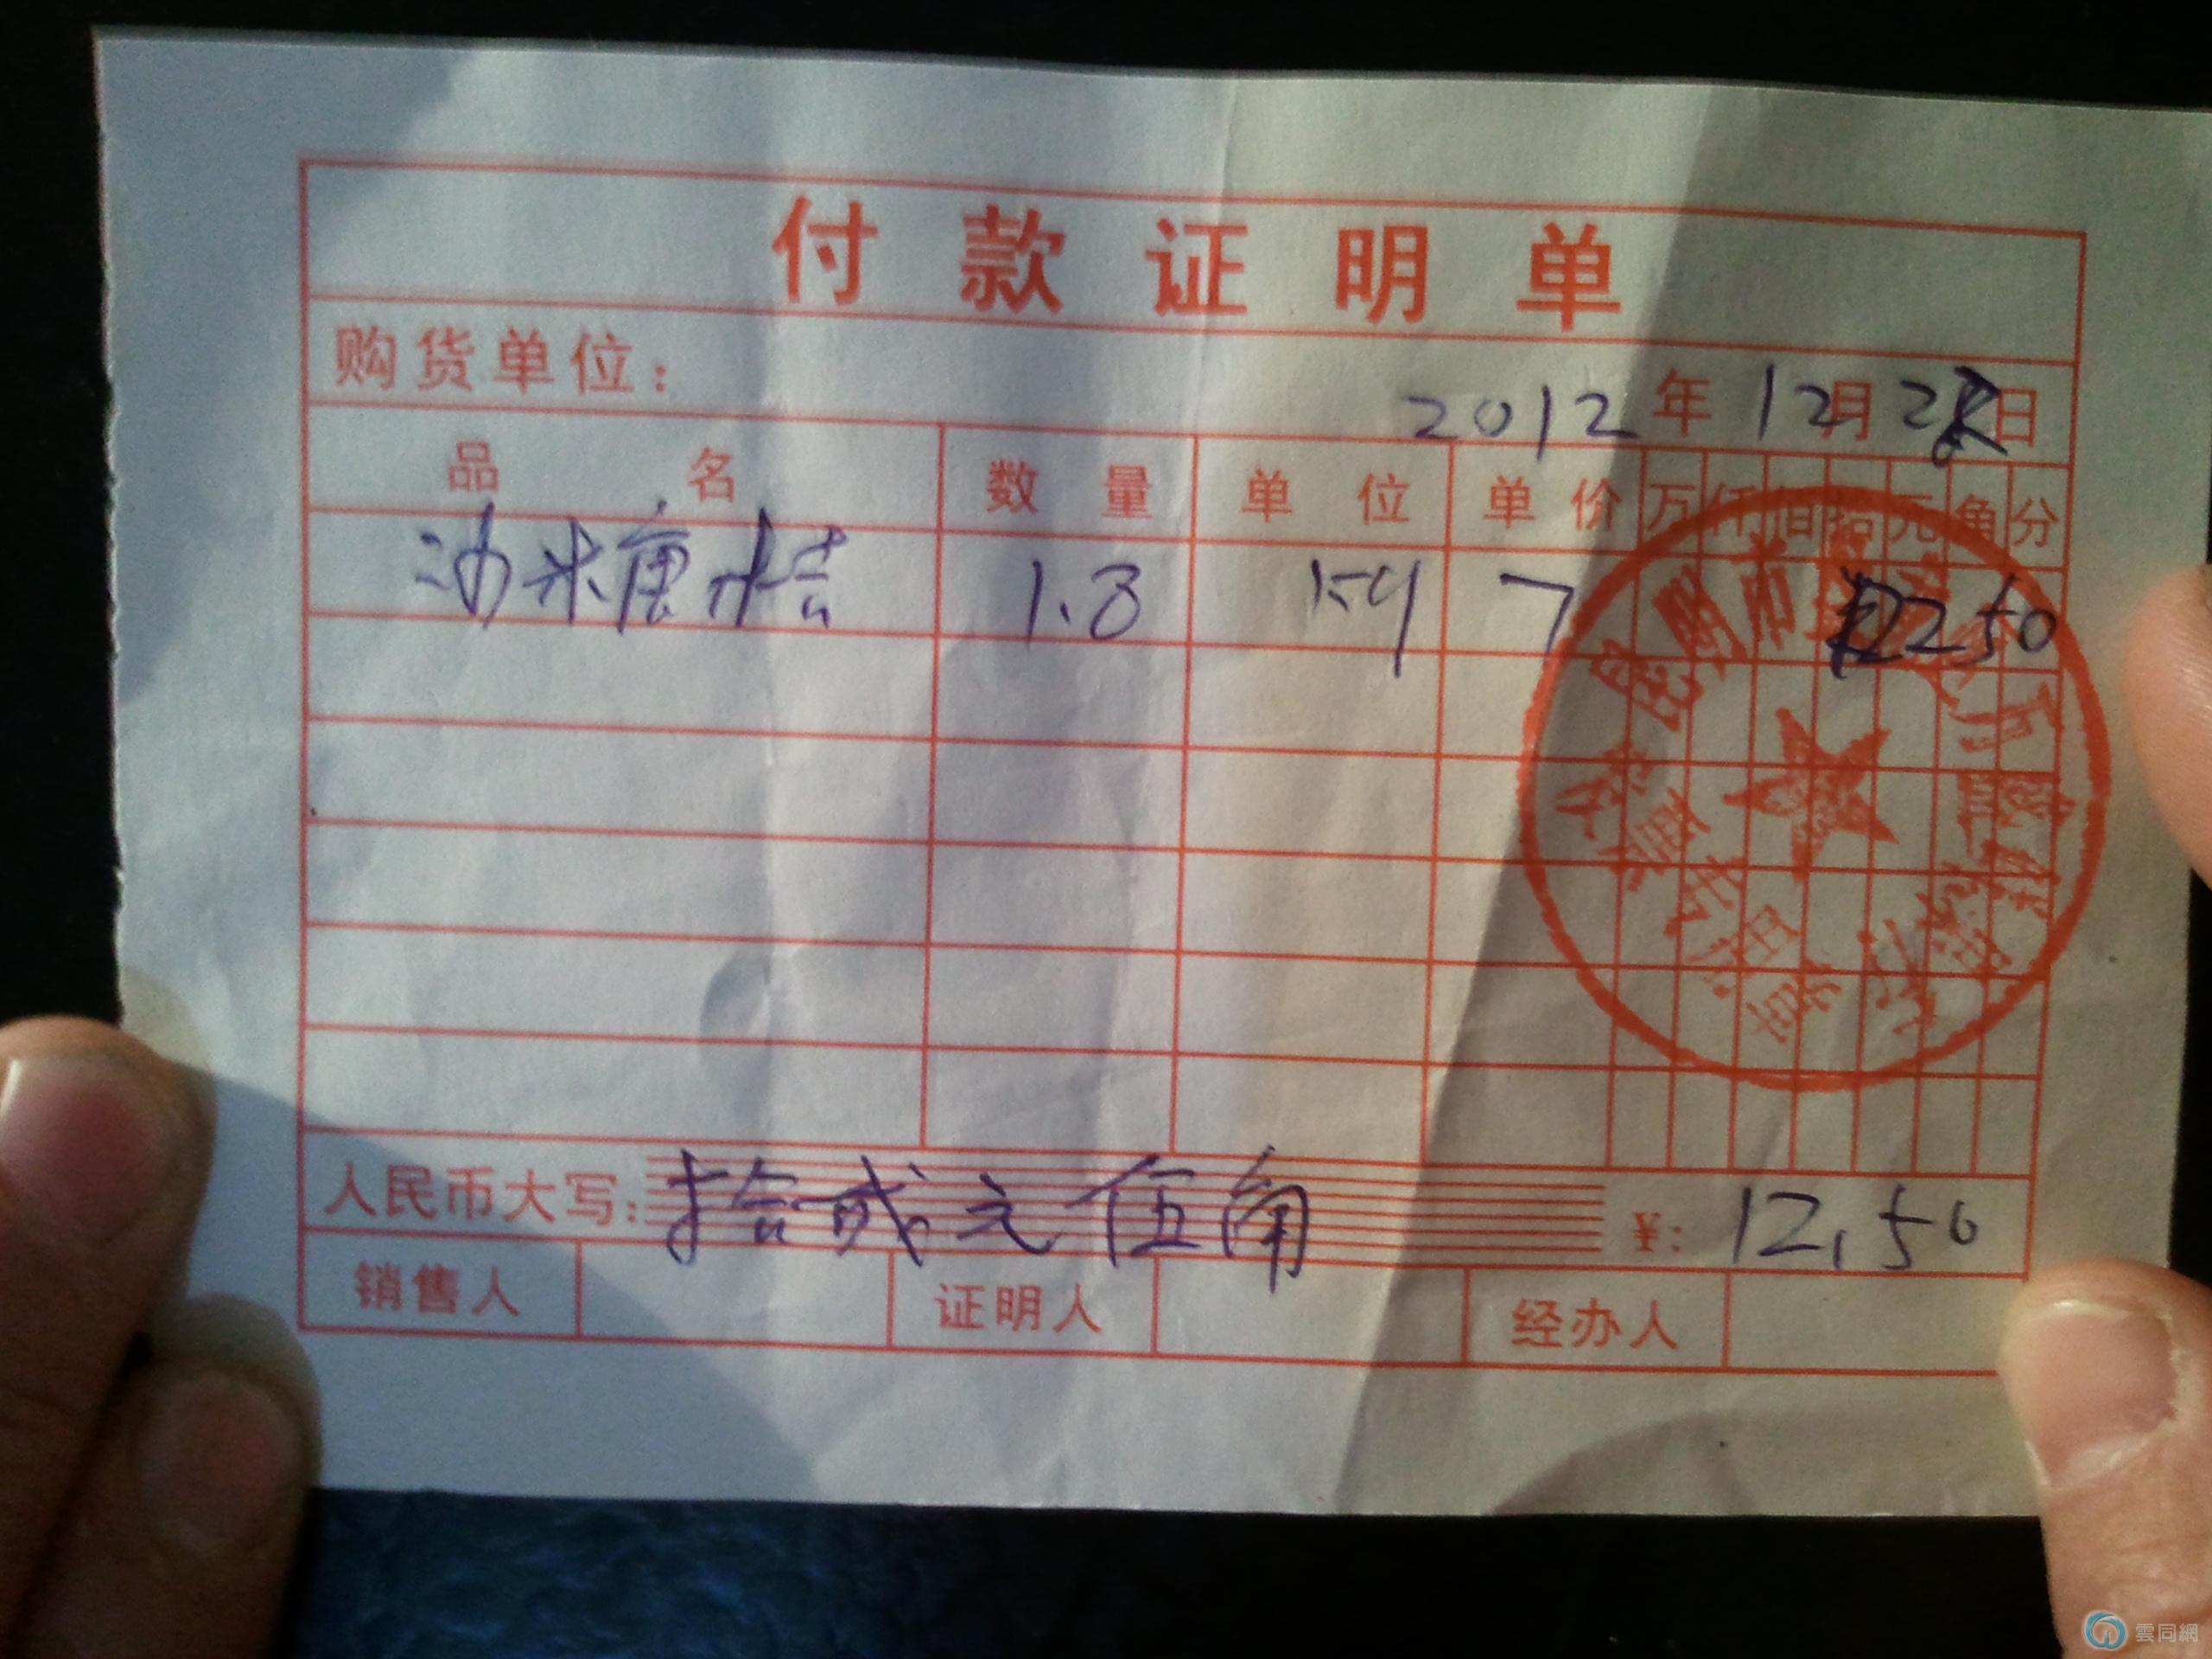 付款证明单
购货单位: 2012年12月2日
品名 数量 单位 单价 万仟佰拾元角分
沙米唐桔 1.8 公斤 7 1250
人民币大写: 拾贰元伍角 ¥: 12.50
销售人 证明人 经办人
昆明市
雲同網